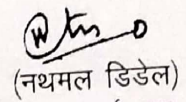 (नथमल डिडेल)